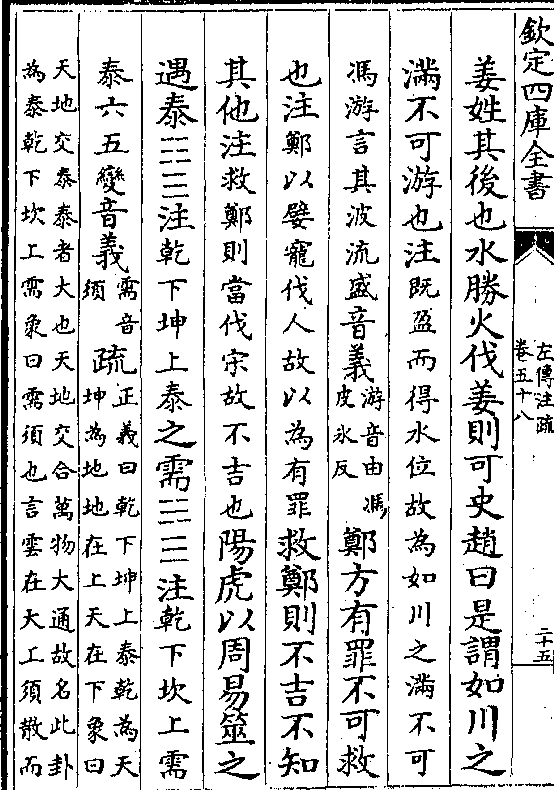 欽定四庫全書
左傳注疏
卷五十八
二十五
姜姓其後也水勝火伐姜則可史趙曰是謂如川之
滿不可游也注既盈而得水位故為如川之滿不可
馮游言其波流盛音義游音由馮
皮氷反鄭方有罪不可救
也注鄭以嬖寵伐人故以為有罪救鄭則不吉不知
其他注救鄭則當伐宋故不吉也陽虎以周易筮之
遇泰☰☷注乾下坤上泰之需☰☵注乾下坎上需
泰六五變音義需音
須疏正義曰乾下坤上泰乾為天
坤為地地在上天在下象曰
天地交泰泰者大也天地交合萬物大通故名此卦
為泰乾下坎上需象曰需須也言雲在大工須散而